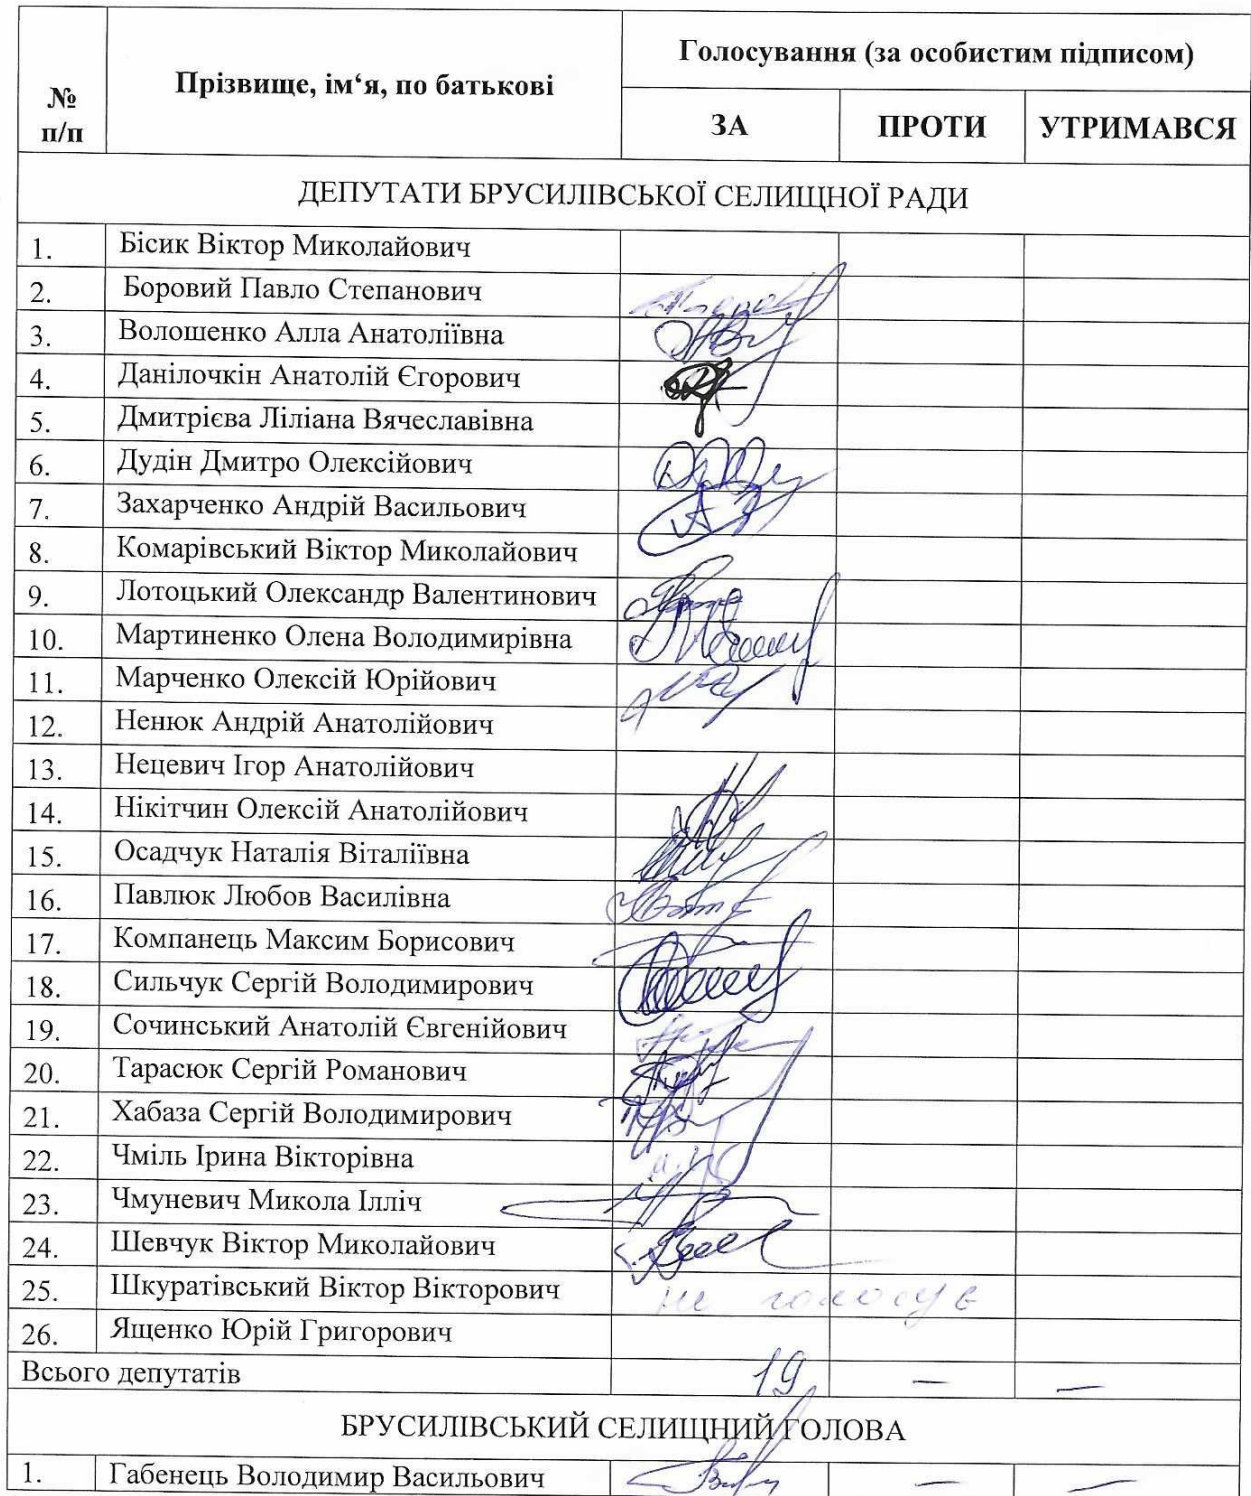 № п/п Прізвище, ім‘я, по батькові Голосування (за особистим підписом)
ЗА ПРОТИ УТРИМАВСЯ
ДЕПУТАТИ БРУСИЛІВСЬКОЇ СЕЛИЩНОЇ РАДИ
1. Бісик Віктор Миколайович
2. Боровий Павло Степанович
3. Волошенко Алла Анатоліївна
4. Данілочкін Анатолій Єгорович
5. Дмитрієва Ліліана Вячеславівна
6. Дудін Дмитро Олексійович
7. Захарченко Андрій Васильович
8. Комарівський Віктор Миколайович
9. Лотоцький Олександр Валентинович
10. Мартиненко Олена Володимирівна
11. Марченко Олексій Юрійович
12. Ненюк Андрій Анатолійович
13. Нецевич Ігор Анатолійович
14. Нікітчин Олексій Анатолійович
15. Осадчук Наталія Віталіївна
16. Павлюк Любов Василівна
17. Компанець Максим Борисович
18. Сильчук Сергій Володимирович
19. Сочинський Анатолій Євгенійович
20. Тарасюк Сергій Романович
21. Хабаза Сергій Володимирович
22. Чміль Ірина Вікторівна
23. Чмуневич Микола Ілліч
24. Шевчук Віктор Миколайович
25. Шкуратівський Віктор Вікторович не голосує
26. Ященко Юрій Григорович
Всього депутатів 19 — —
БРУСИЛІВСЬКИЙ СЕЛИЩНИЙ ГОЛОВА
1. Габенець Володимир Васильович — —